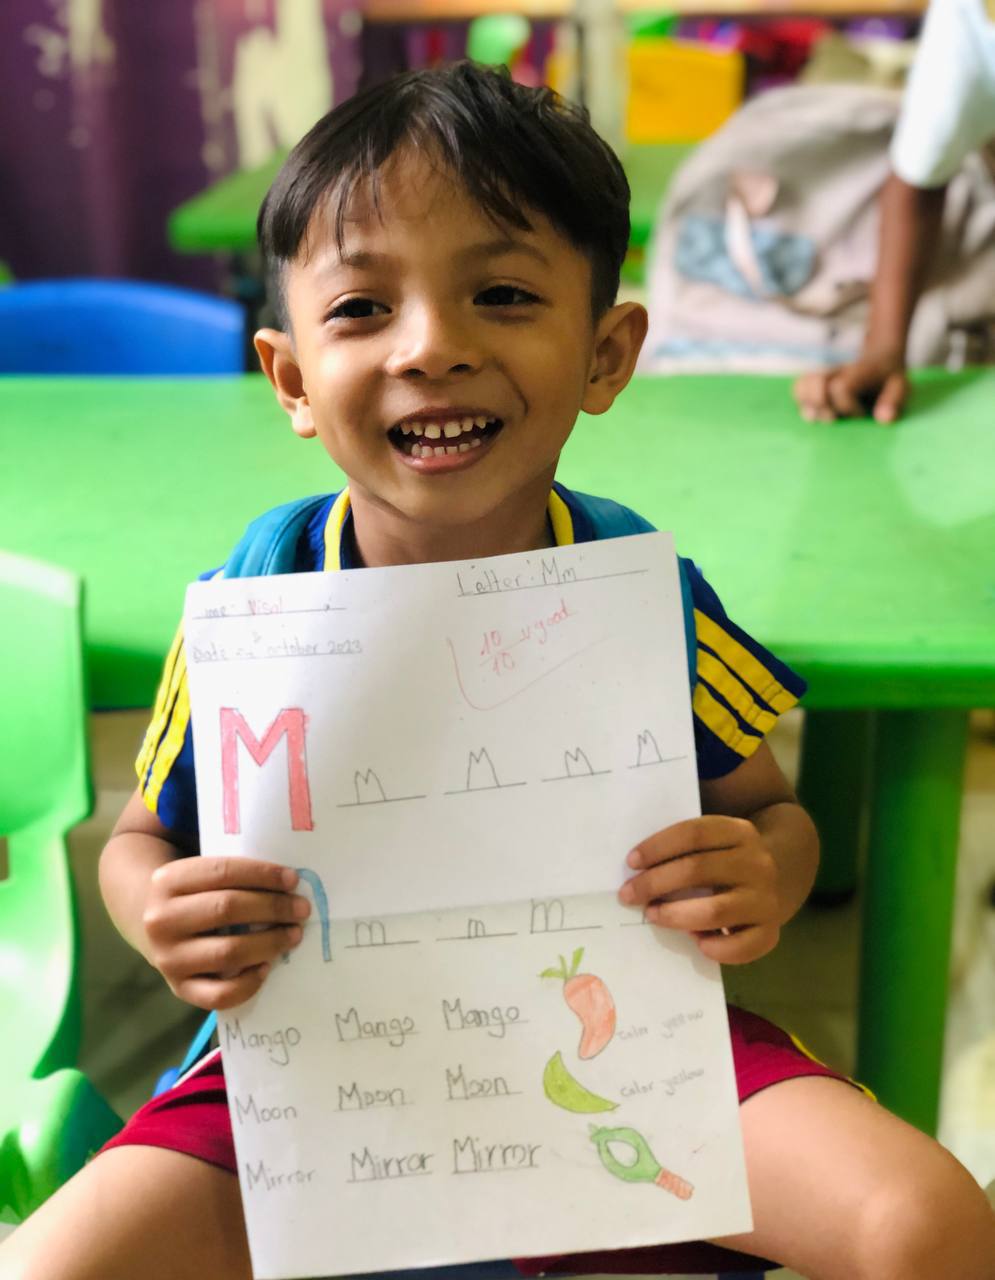 Letter: Mm
Visal
Date october 2023
10/10 v.good
M M M M M
m m m
Mango Mango Mango
color yellow
Moon Moon Moon
color yellow
Mirror Mirror Mirror